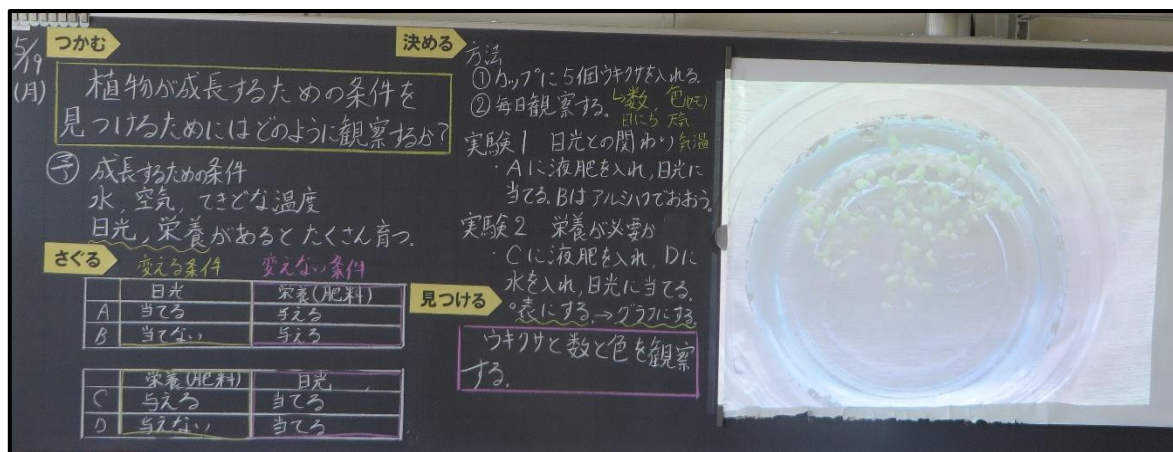 5/19
(月)
つかむ
植物が成長するための条件を
見つけるためにはどのように観察するか?
予 成長するための条件
水, 空気, てきどな温度
日光, 栄養があるとたくさん育つ.
さぐる
変える条件 変えない条件
日光 栄養(肥料)
A 当てる 与える
B 当てない 与える
栄養(肥料) 日光
C 与える 当てる
D 与えない 当てる
決める
方法
① カップに5個ウキクサを入れる.
② 毎日観察する. ↳数, 色
日にち 天気
実験1 日光との関わり 気温
・Aに液肥を入れ, 日光に
当てる. Bはアルミハクでおおう.
実験2 栄養が必要か
・Cに液肥を入れ, Dに
水を入れ, 日光に当てる.
見つける
。表にする.→グラフにする.
ウキクサと数と色を観察
する.